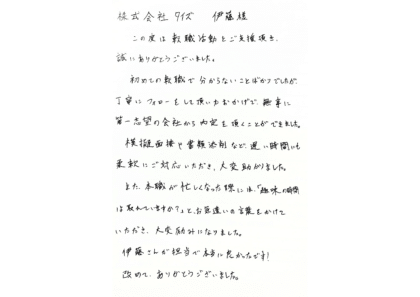 株式会社ワイズ 伊藤様
この度は転職活動をご支援頂き、
誠にありがとうございました。
初めての転職で分からないことばかりでしたが、
丁寧にフォローをして頂いたおかげで、無事に
第一志望の会社から内定を頂くことができました。
模擬面接や書類添削など、遅い時間にも
柔軟にご対応いただき、大変助かりました。
また、本職が忙しくなった際には、「趣味の時間
は取れていますか？」と、お気遣いの言葉をかけて
いただき、大変励みになりました。
伊藤さんが担当で本当に良かったです！
改めて、ありがとうございました。